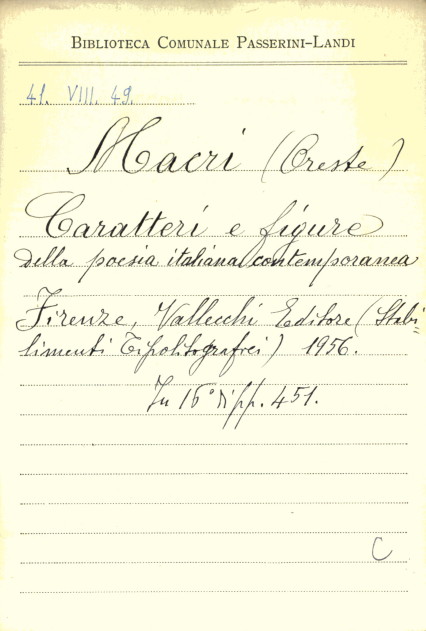 BIBLIOTECA COMUNALE PASSERINI-LANDI
41. VIII. 49.
Macrí (Oreste)
Caratteri e figure
della poesia italiana contemporanea
Firenze, Vallecchi Editore (Stabi=
limenti Tipolitografici) 1956.
In 16° di pp. 451.
C